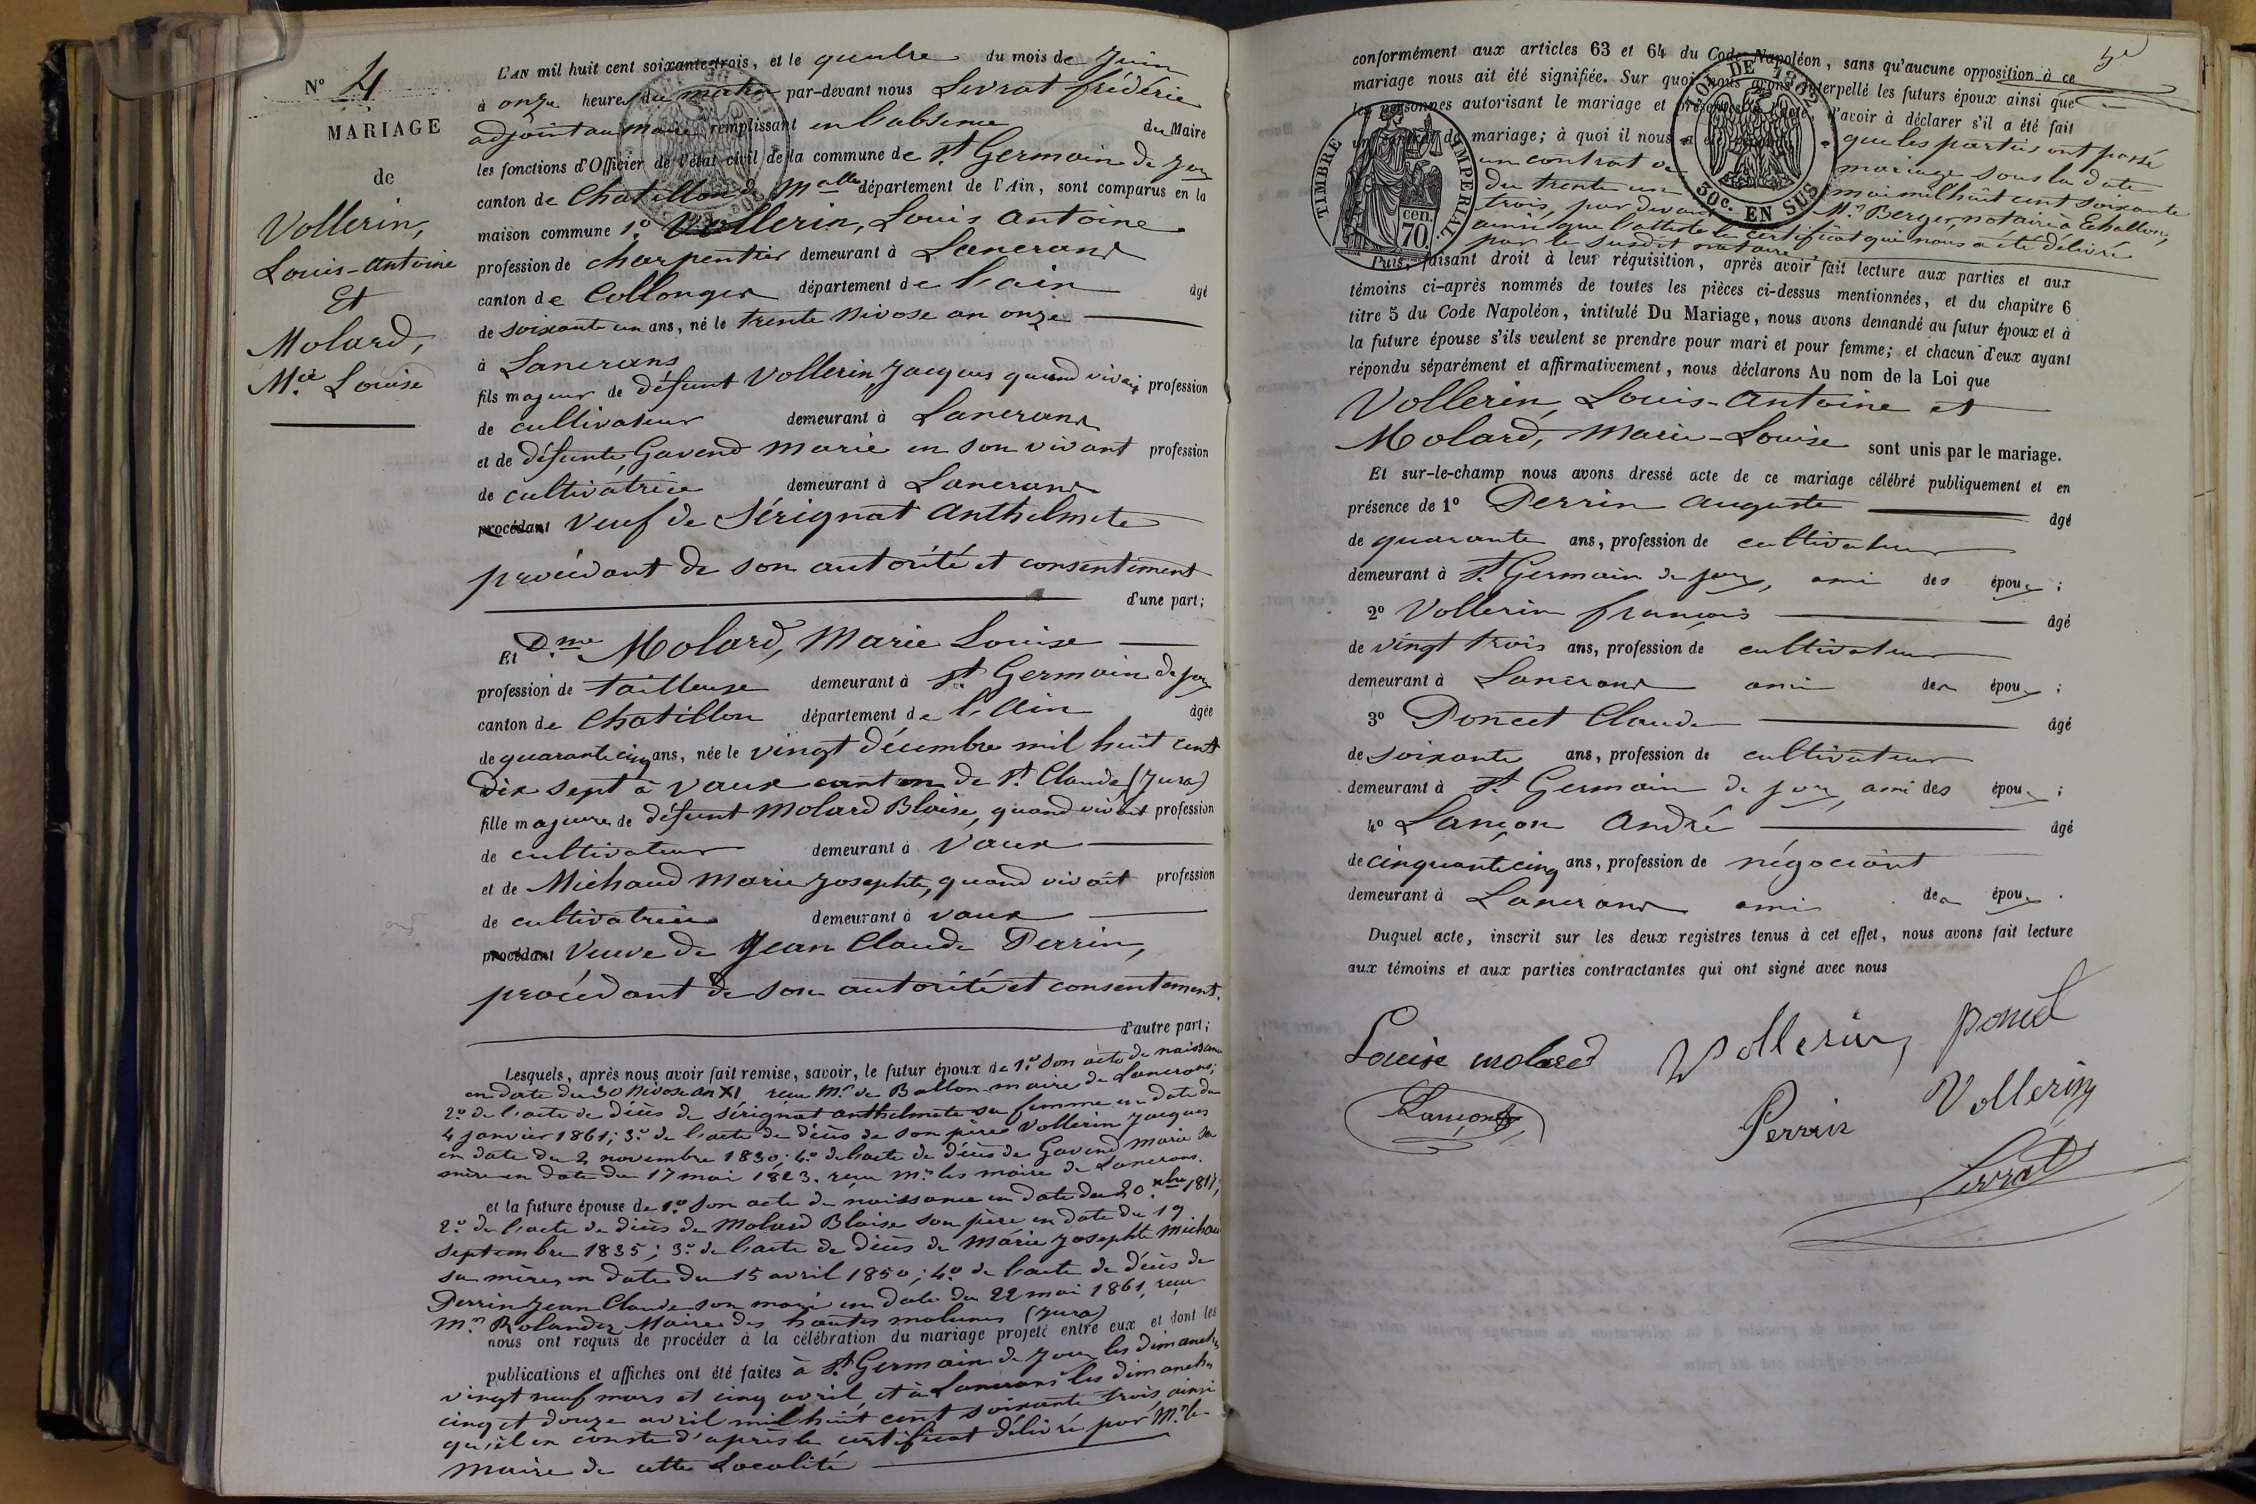 N° 4
MARIAGE
de
Vollerin,
Louis-Antoine
Et
Molard,
Mie Louise
L'AN mil huit cent soixante-trois, et le quatre du mois de Juin
à onze heures du matin par-devant nous Livrat frédéric
adjoint au maire remplissant en l'absence du Maire
les fonctions d'Officier de l'état civil de la commune de St Germain de Joux
canton de Chatillon de Mlle département de l'Ain, sont comparus en la
maison commune 1° Vollerin, Louis Antoine
profession de charpentier demeurant à Lancrans
canton de Collonges département de l'ain âgé
de soixante un ans, né le trente Nivose an onze
à Lancrans
fils majeur de défunt Vollerin Jacques quand vivait profession
de cultivateur demeurant à Lancrans
et de défunte Gavend Marie en son vivant profession
de cultivatrice demeurant à Lancrans
procédant Veuf de Sérignat Anthelmete
procédant de son autorité et consentement
d'une part;
Et Dme Molard, Marie Louise
profession de tailleuse demeurant à St Germain de Joux
canton de Chatillon département de l'Ain âgée
de quarante cinq ans, née le vingt décembre mil huit cent
dix sept à Vaux canton de St Claude (Jura)
fille majeure de défunt Molard Blaise, quand vivait profession
de cultivateur demeurant à Vaux
et de Michaud Marie Josephte, quand vivait profession
de cultivatrice demeurant à Vaux
procédant Veuve de Jean Claude Perrin,
procédant de son autorité et consentement.
d'autre part;
Lesquels, après nous avoir fait remise, savoir, le futur époux de 1° Son acte de naissance
en date du 30 Nivose an XI reçu Mr de Ballon maire de Lancrans;
2° de l'acte de décès de Sérignat anthelmete sa femme en date du
4 janvier 1861; 3° de l'acte de décès de son père Vollerin Jacques
en date du 2 novembre 1830; 4° de l'acte de décès de Gavend Marie sa
mère en date du 17 mai 1823. reçu Mrs les maire de Lancrans.
et la future épouse de 1° Son acte de naissance en date du 20 xbre 1817;
2° de l'acte de décès de Molard Blaise son père en date du 19
septembre 1835; 3° de l'acte de décès de Marie Josephte Michaud
sa mère en date du 15 avril 1850; 4° de l'acte de décès de
Perrin Jean Claude son mari en date du 22 mai 1861, reçu
Mr Rolandez Maire des hautes molunes (Jura)
nous ont requis de procéder à la célébration du mariage projeté entre eux et dont les
publications et affiches ont été faites à St Germain de Joux les dimanches
vingt neuf mars et cinq avril, et à Lancrans les dimanches
cinq et douze avril mil huit cent soixante trois, ainsi
qu'il en conste d'après le certificat délivré par Mr le
Maire de cette Localité
conformément aux articles 63 et 64 du Code Napoléon, sans qu'aucune opposition à ce
mariage nous ait été signifiée. Sur quoi nous avons interpellé les futurs époux ainsi que
les personnes autorisant le mariage et présentes à l'acte, d'avoir à déclarer s'il a été fait
un contrat de mariage; à quoi il nous a été répondu que les parties ont passé
un contrat de mariage sous la date
du trente un mai mil huit cent soixante
trois, par devant Mr Berger, notaire à Echallon,
ainsi que l'atteste le certificat qui nous a été délivré
par le susdit notaire
TIMBRE IMPERIAL
cen. 70.
LOI DE 1862
30c. EN SUS
Puis, faisant droit à leur réquisition, après avoir fait lecture aux parties et aux
témoins ci-après nommés de toutes les pièces ci-dessus mentionnées, et du chapitre 6
titre 5 du Code Napoléon, intitulé Du Mariage, nous avons demandé au futur époux et à
la future épouse s'ils veulent se prendre pour mari et pour femme; et chacun d'eux ayant
répondu séparément et affirmativement, nous déclarons Au nom de la Loi que
Vollerin, Louis-Antoine et
Molard, Marie-Louise sont unis par le mariage.
Et sur-le-champ nous avons dressé acte de ce mariage célébré publiquement et en
présence de 1° Perrin Auguste âgé
de quarante ans, profession de cultivateur
demeurant à St Germain de Joux, ami des époux;
2° Vollerin françois âgé
de vingt trois ans, profession de cultivateur
demeurant à Lancrans ami des époux;
3° Poncet Claude âgé
de soixante ans, profession de cultivateur
demeurant à St Germain de Joux, ami des époux;
4° Lançon André âgé
de cinquante cinq ans, profession de négociant
demeurant à Lancrans ami des époux.
Duquel acte, inscrit sur les deux registres tenus à cet effet, nous avons fait lecture
aux témoins et aux parties contractantes qui ont signé avec nous
Louise molard Vollerin, poncet
Lançon Perrin Vollerin
Livrat